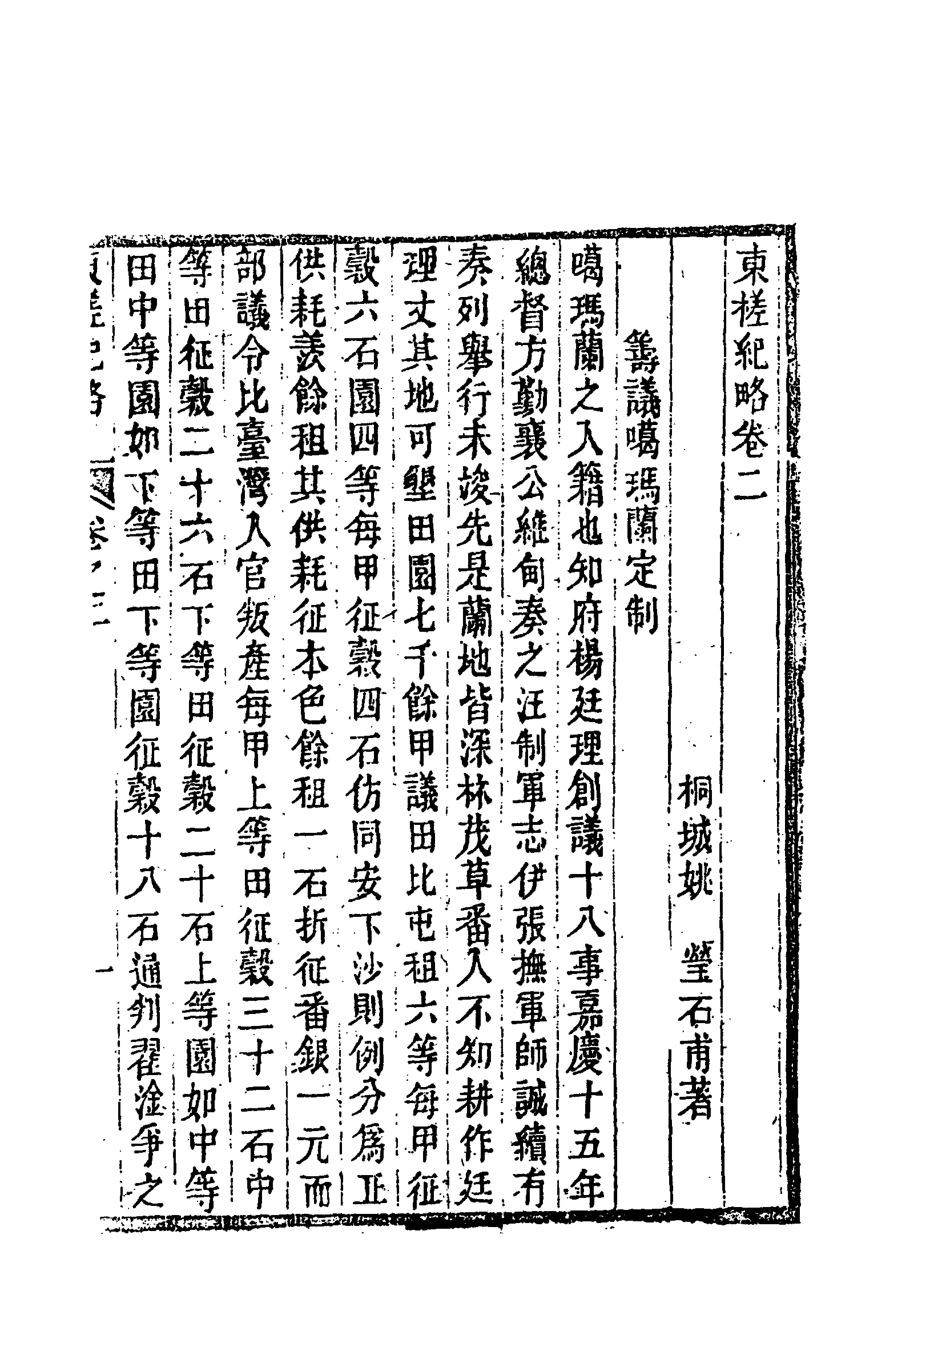 東槎紀略卷二
桐城姚　瑩石甫著
籌議噶瑪蘭定制
噶瑪蘭之入籍也知府楊廷理創議十八事嘉慶十五年
總督方勤襄公維甸奏之汪制軍志伊張撫軍師誠續有
奏列舉行未竣先是蘭地皆深林茂草番人不知耕作廷
理丈其地可墾田園七千餘甲議田比屯租六等每甲征
穀六石園四等每甲征穀四石仿同安下沙則例分爲正
供耗羨餘租其供耗征本色餘租一石折征番銀一元而
部議令比臺灣入官叛產每甲上等田征穀三十二石中
等田征穀二十六石下等田征穀二十石上等園如中等
田中等園如下等田下等園征穀十八石通判翟淦爭之
東槎紀略　卷之二　一